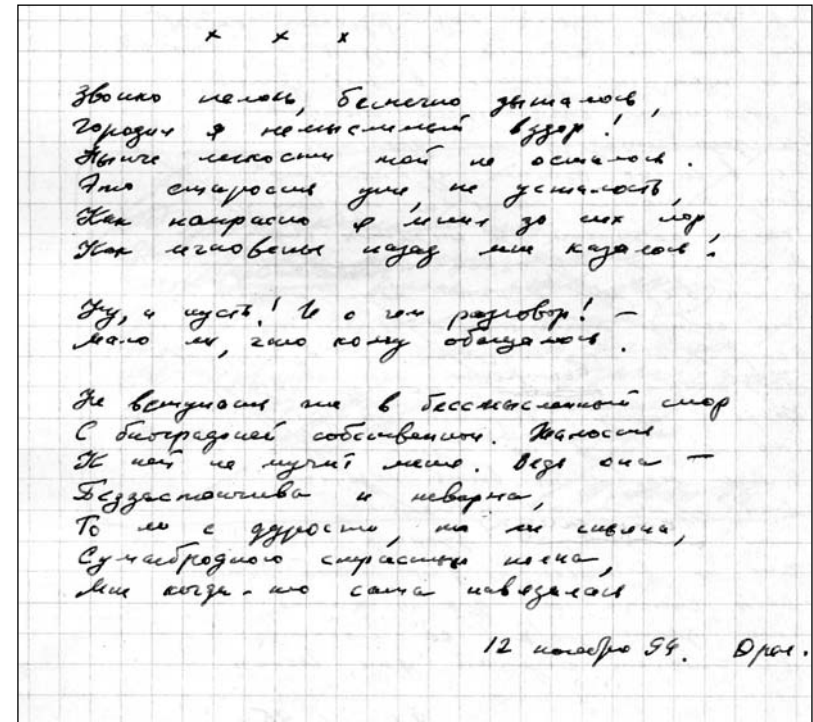 × × ×
Звонко пелось, беспечно дышалось,
Городил я немыслимый вздор!
Нынче легкости той не осталось.
Это старость уже, не усталость,
Как напрасно я мнил до сих пор,
Как мгновенье назад мне казалось!
Ну, и пусть! И о чем разговор! –
Мало ли, что кому обещалось.
Не вступают же в бессмысленный спор
С биографией собственной. Жалости
К ней не мучит меня. Ведь она –
Беззастенчива и неверна,
То ли с дурости, то ли спьяна,
Сумасбродною страстью полна,
Мне когда-то сама навязалась
12 ноября 94.